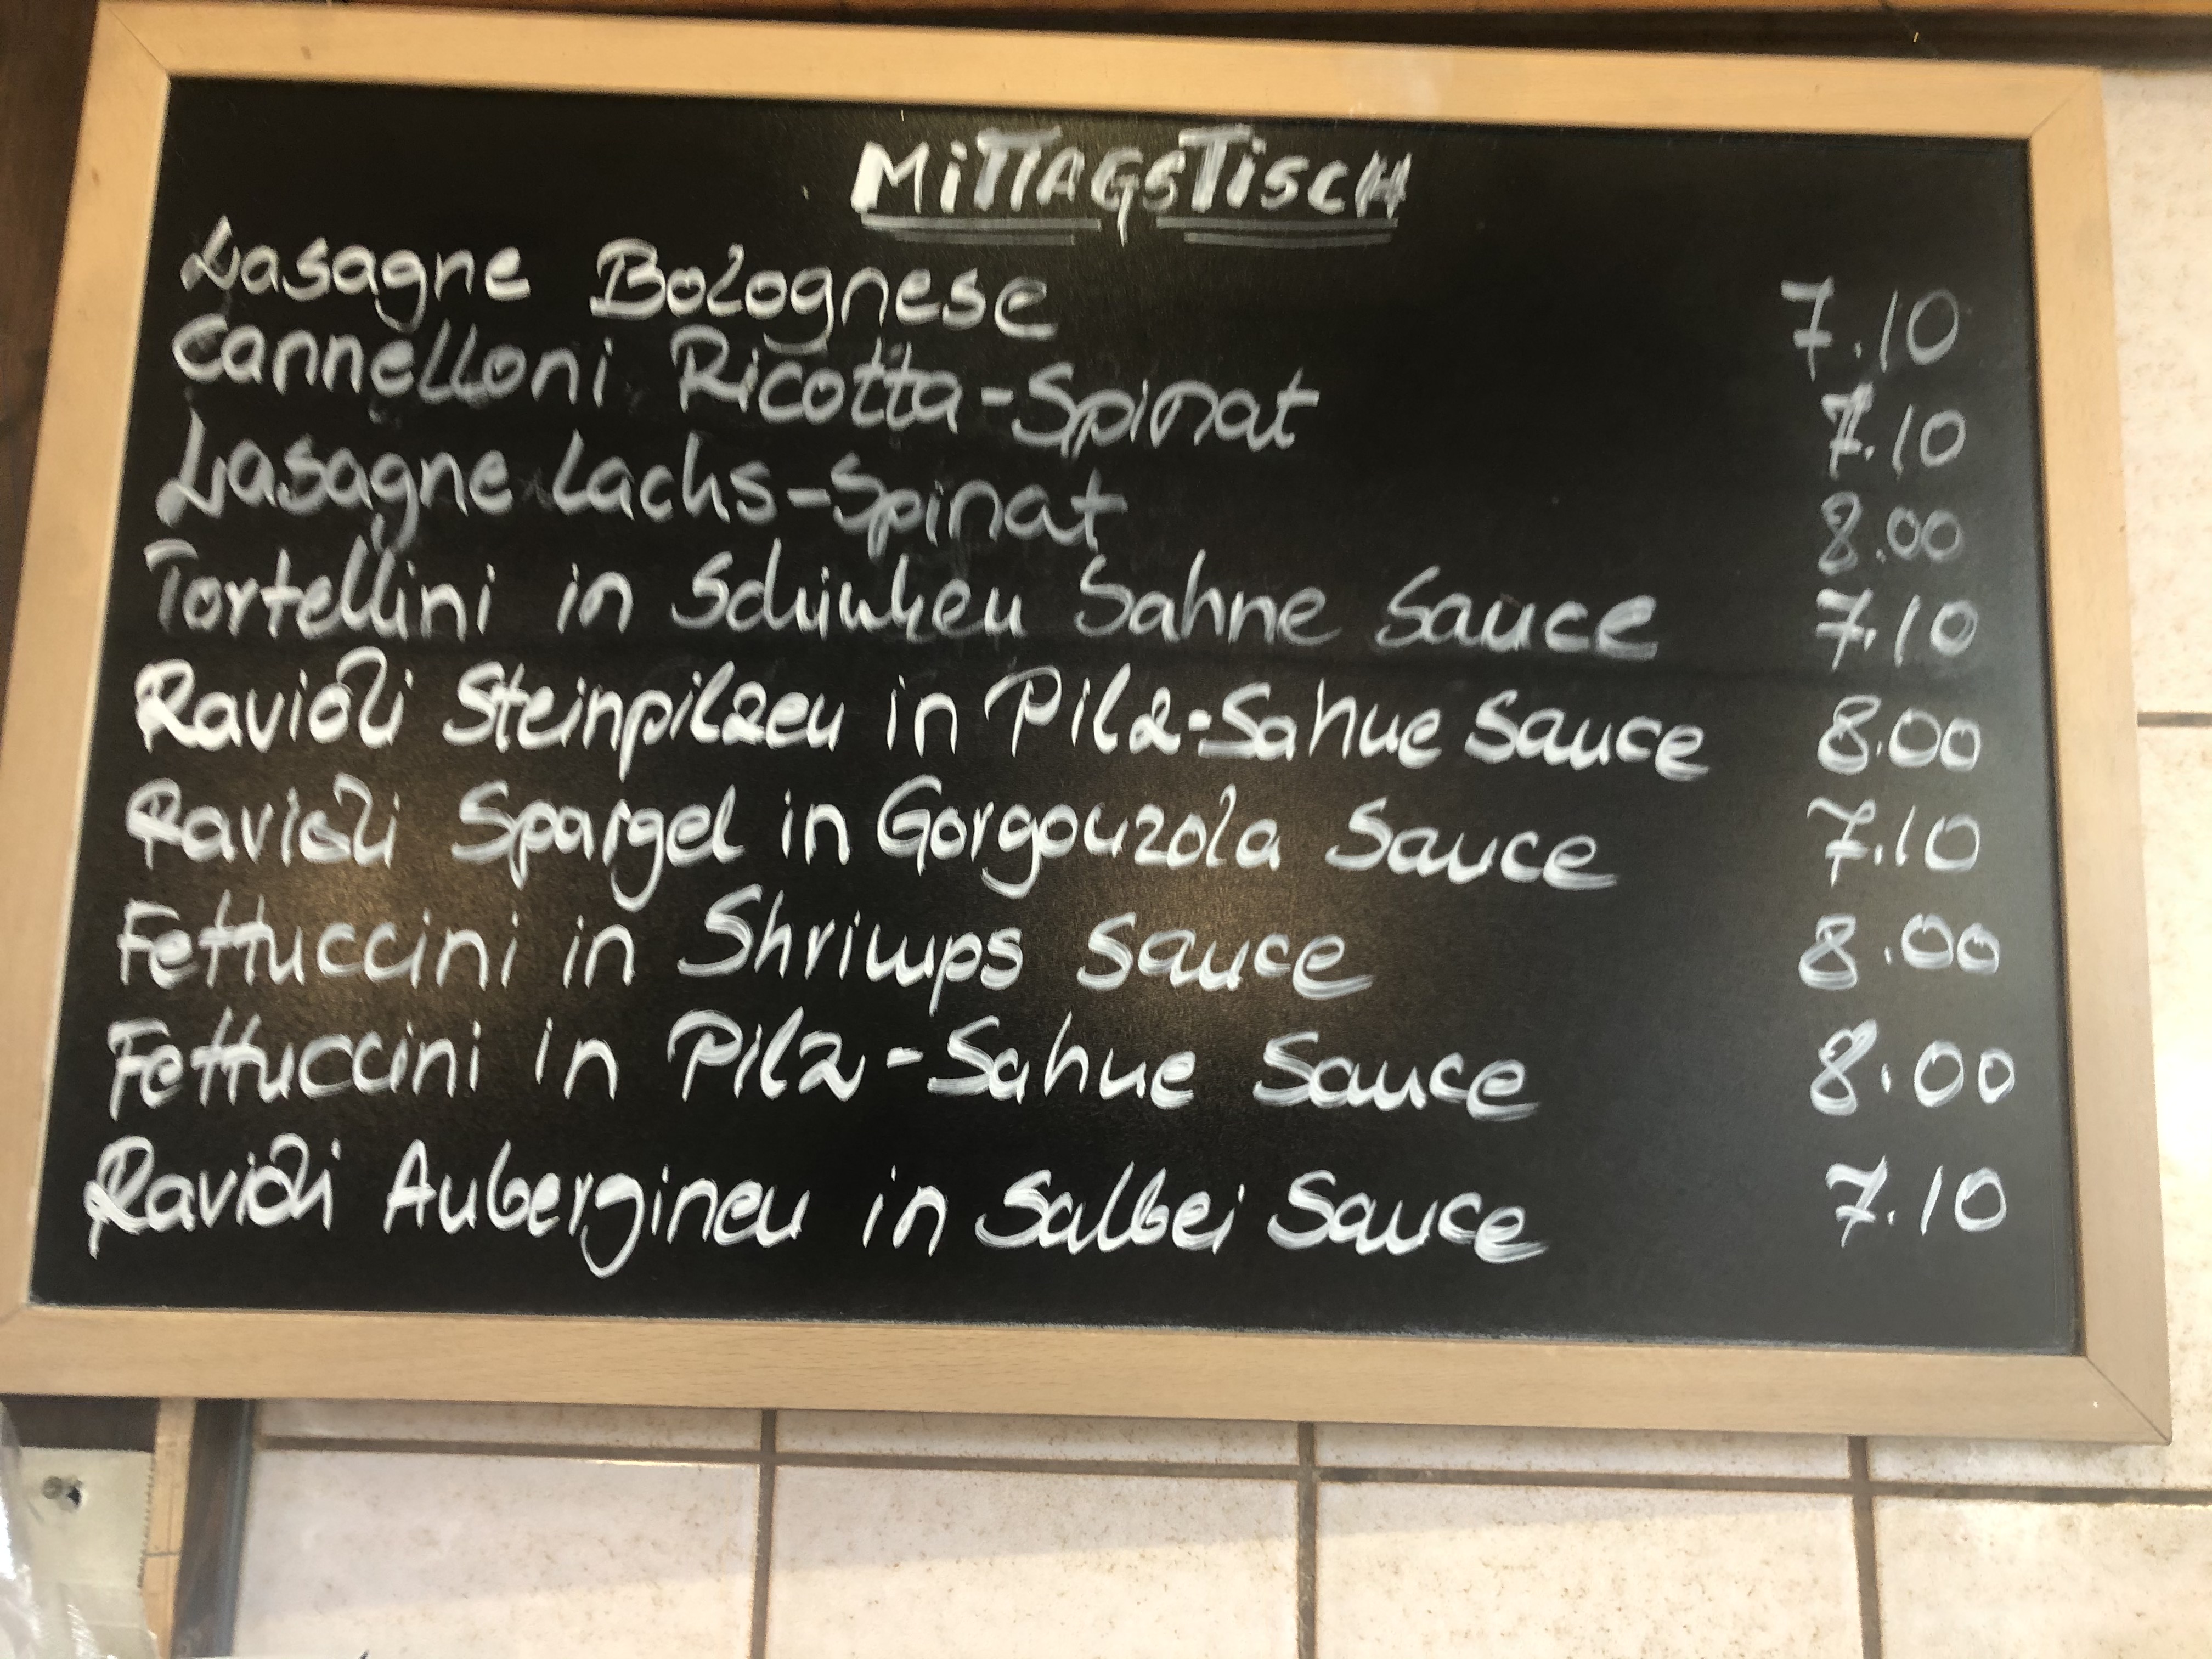 MiTTAGSTiSCH
Lasagne Bolognese 7.10
Cannelloni Ricotta-Spinat 7.10
Lasagne Lachs-Spinat 8.00
Tortellini in Schinken Sahne Sauce 7.10
Ravioli Steinpilzen in Pilz-Sahne Sauce 8.00
Ravioli Spargel in Gorgonzola Sauce 7.10
Fettuccini in Shrimps Sauce 8.00
Fettuccini in Pilz-Sahne Sauce 8.00
Ravioli Auberginen in Salbei Sauce 7.10